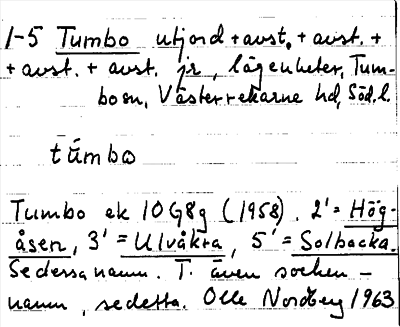 1-5 Tumbo utjord + avst. + avst. +
+ avst. + avst. jr, lägenheter, Tum-
bo sn, Västerrekarne hd, Söd.l.
túmbo
Tumbo ek 10G8g (1958). 2' = Hög-
åsen, 3' = Ulvåkra, 5' = Solbacka.
Se dessa namn. T. även socken-
namn, se detta. Olle Nordberg 1963